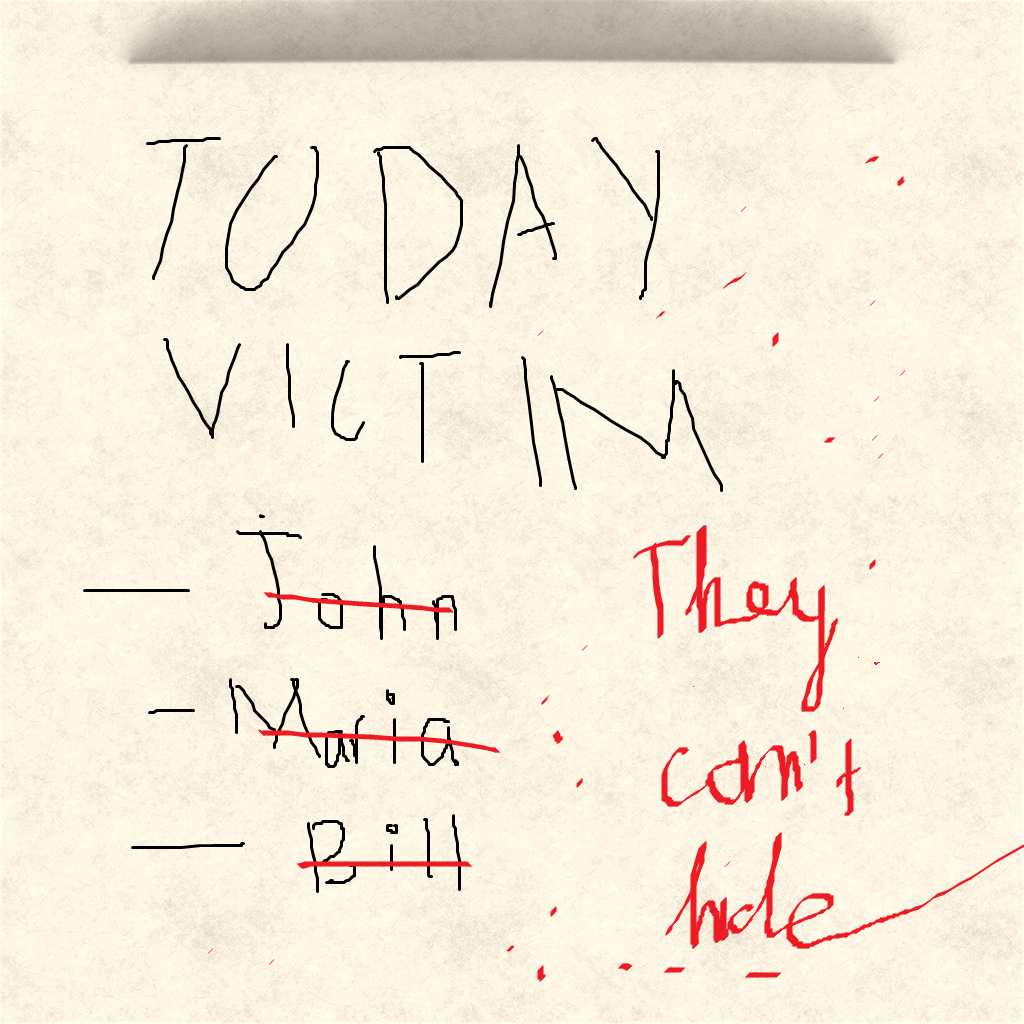 TODAY
VICTIM
— John
— Maria
— Bill
They
can't
hide